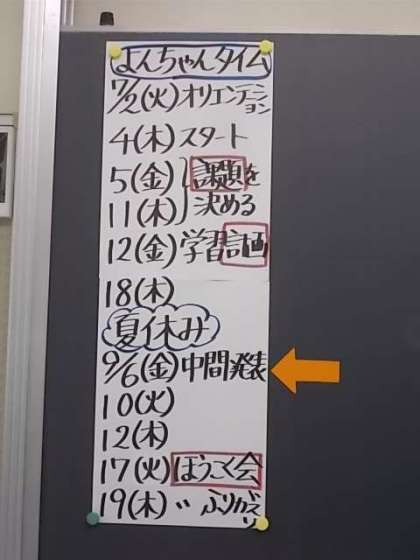 よんちゃんタイム
7/2(火)オリエンテーション
4(木)スタート
5(金)課題を
11(木)決める
12(金)学習計画
18(木)
夏休み
9/6(金)中間発表
10(火)
12(木)
17(火)ほうこく会
19(木)〃ふりかえり